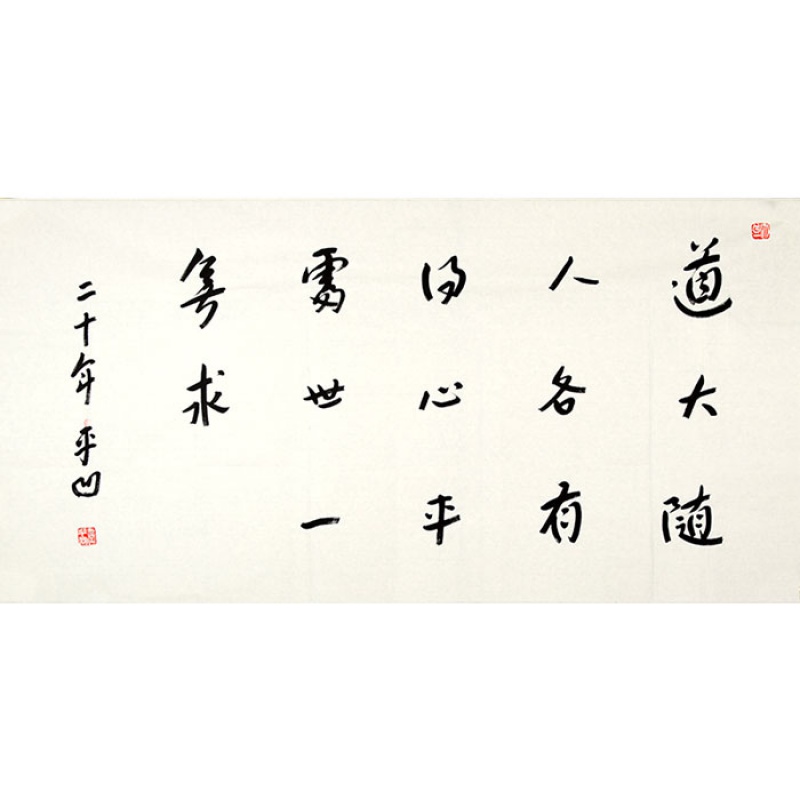 道大随
人各有
得心平
處世一
無求
二十年 平凹